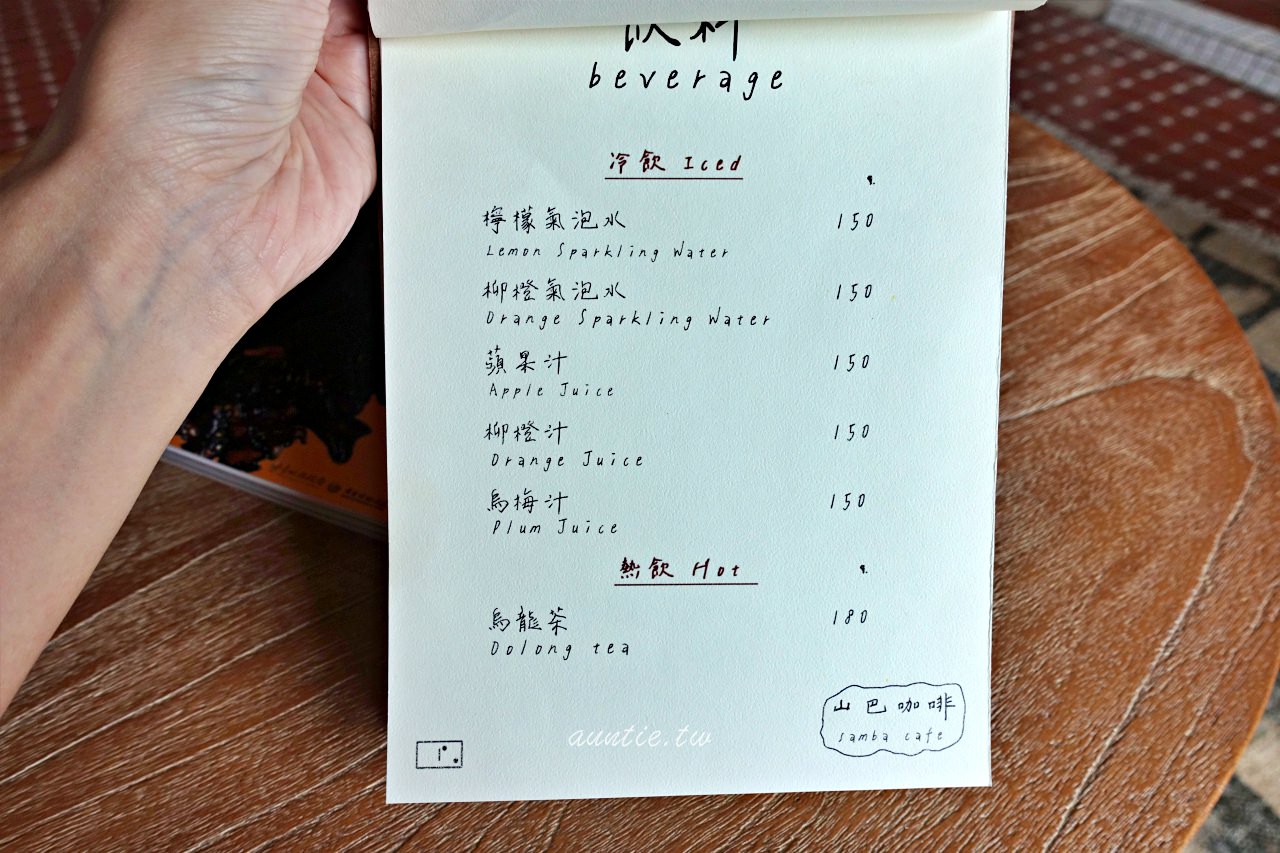 飲料
beverage
冷飲 Iced
檸檬氣泡水 150
Lemon Sparkling Water
柳橙氣泡水 150
Orange Sparkling Water
蘋果汁 150
Apple Juice
柳橙汁 150
Orange Juice
烏梅汁 150
Plum Juice
熱飲 Hot
烏龍茶 180
Oolong tea
山巴咖啡
samba cafe
auntie.tw